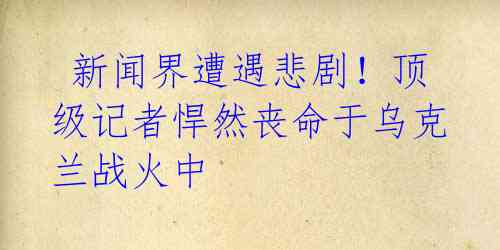 新闻界遭遇悲剧！顶
级记者悍然丧命于乌克
兰战火中